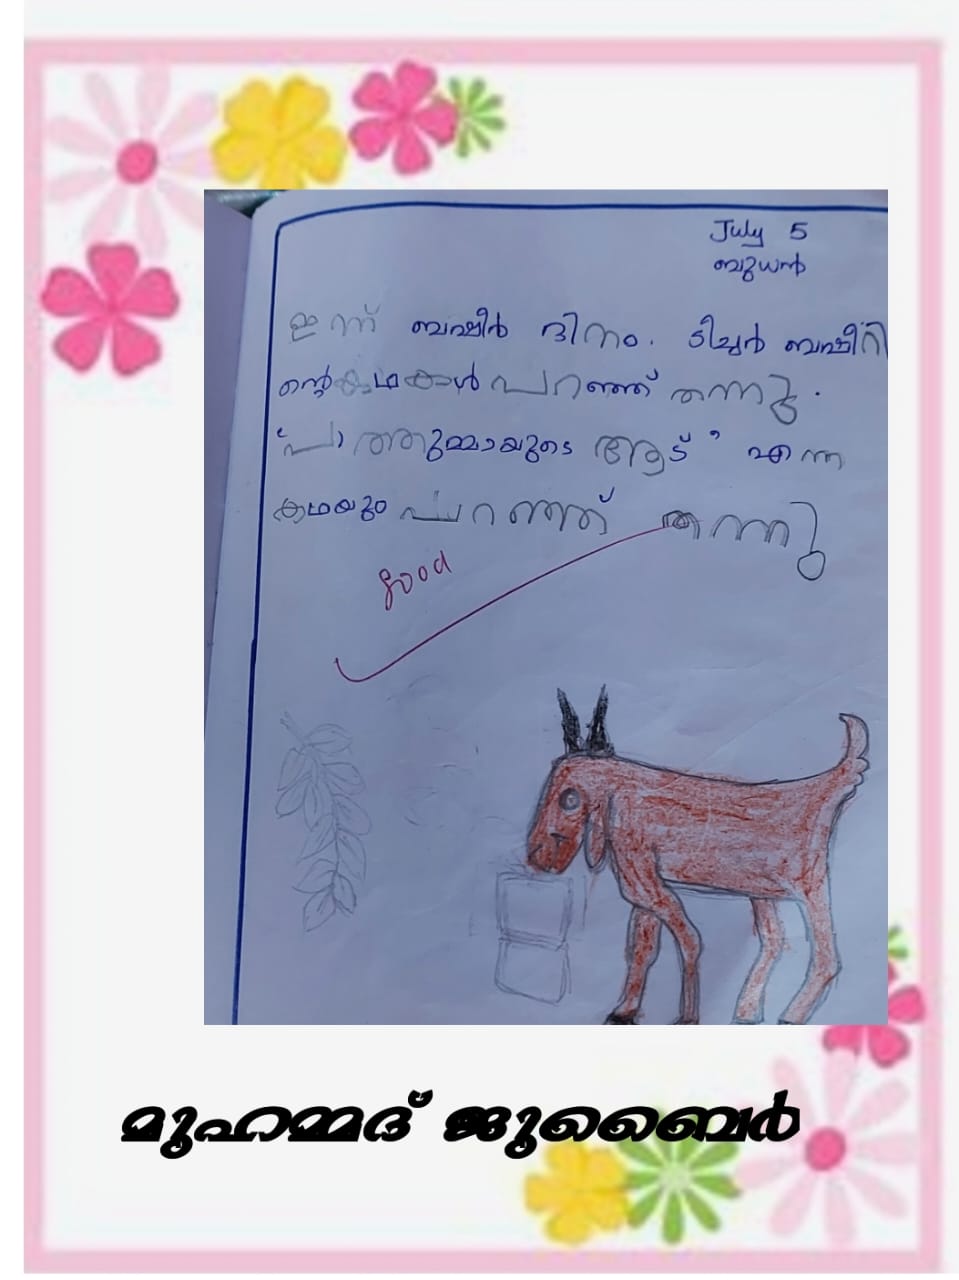 July 5
ബുധൻ
ഇന്ന് ബഷീർ ദിനം. ടീച്ചർ ബഷീറി
ന്റെ കഥകൾ പറഞ്ഞ് തന്നു.
'പാത്തുമ്മായുടെ ആട്' എന്ന
കഥയും പറഞ്ഞ് തന്നു
good
മുഹമ്മദ് ജുബൈർ